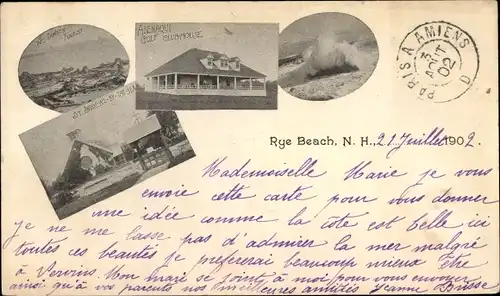 ABENAQUI
GOLF CLUB HOUSE
ST. ANDREWS-BY-THE-SEA
PARIS A AMIENS
AOUT
02
Rye Beach, N. H., 21 Juillet 1902.
Mademoiselle Marie je vous
envoie cette carte pour vous donner
une idée comme la côte est belle ici
je ne me lasse pas d'admirer la mer malgré
toutes ces beautés je prefererai beaucoup mieux être
à Vervins. Mon mari se joint à moi pour vous envoyer
ainsi qu'à vos parents nos meilleures amitiés Jeanne